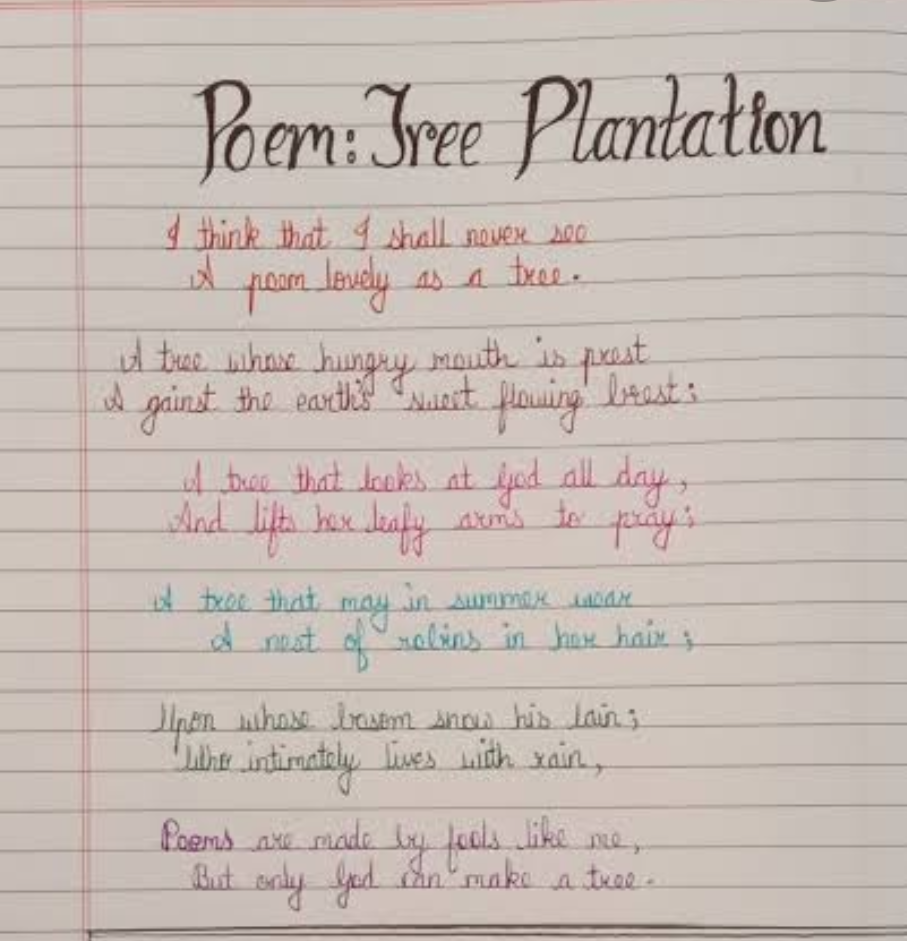 Poem: Tree Plantation
I think that I shall never see
A poem lovely as a tree.
A tree whose hungry mouth is prest
A gainst the earth's sweet flowing brest;
A tree that looks at God all day,
And lifts her leafy arms to pray;
A tree that may in summer wear
A nest of robins in her hair;
Upon whose bosom snow his lain;
Who intimately lives with rain,
Poems are made by fools like me,
But only God can make a tree.